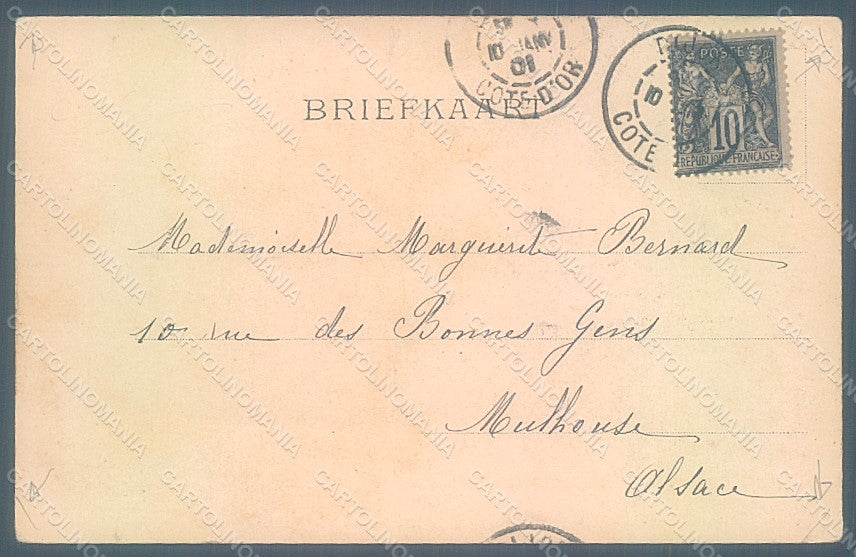 10 JANV
01
COTE-D'OR
BRIEFKAART
10
COTE
POSTE
10
REPUBLIQUE FRANÇAISE
Mademoiselle Marguerite Bernard
10 rue des Bonnes Gens
Mulhouse
Alsace
CARTOLINOMANIA